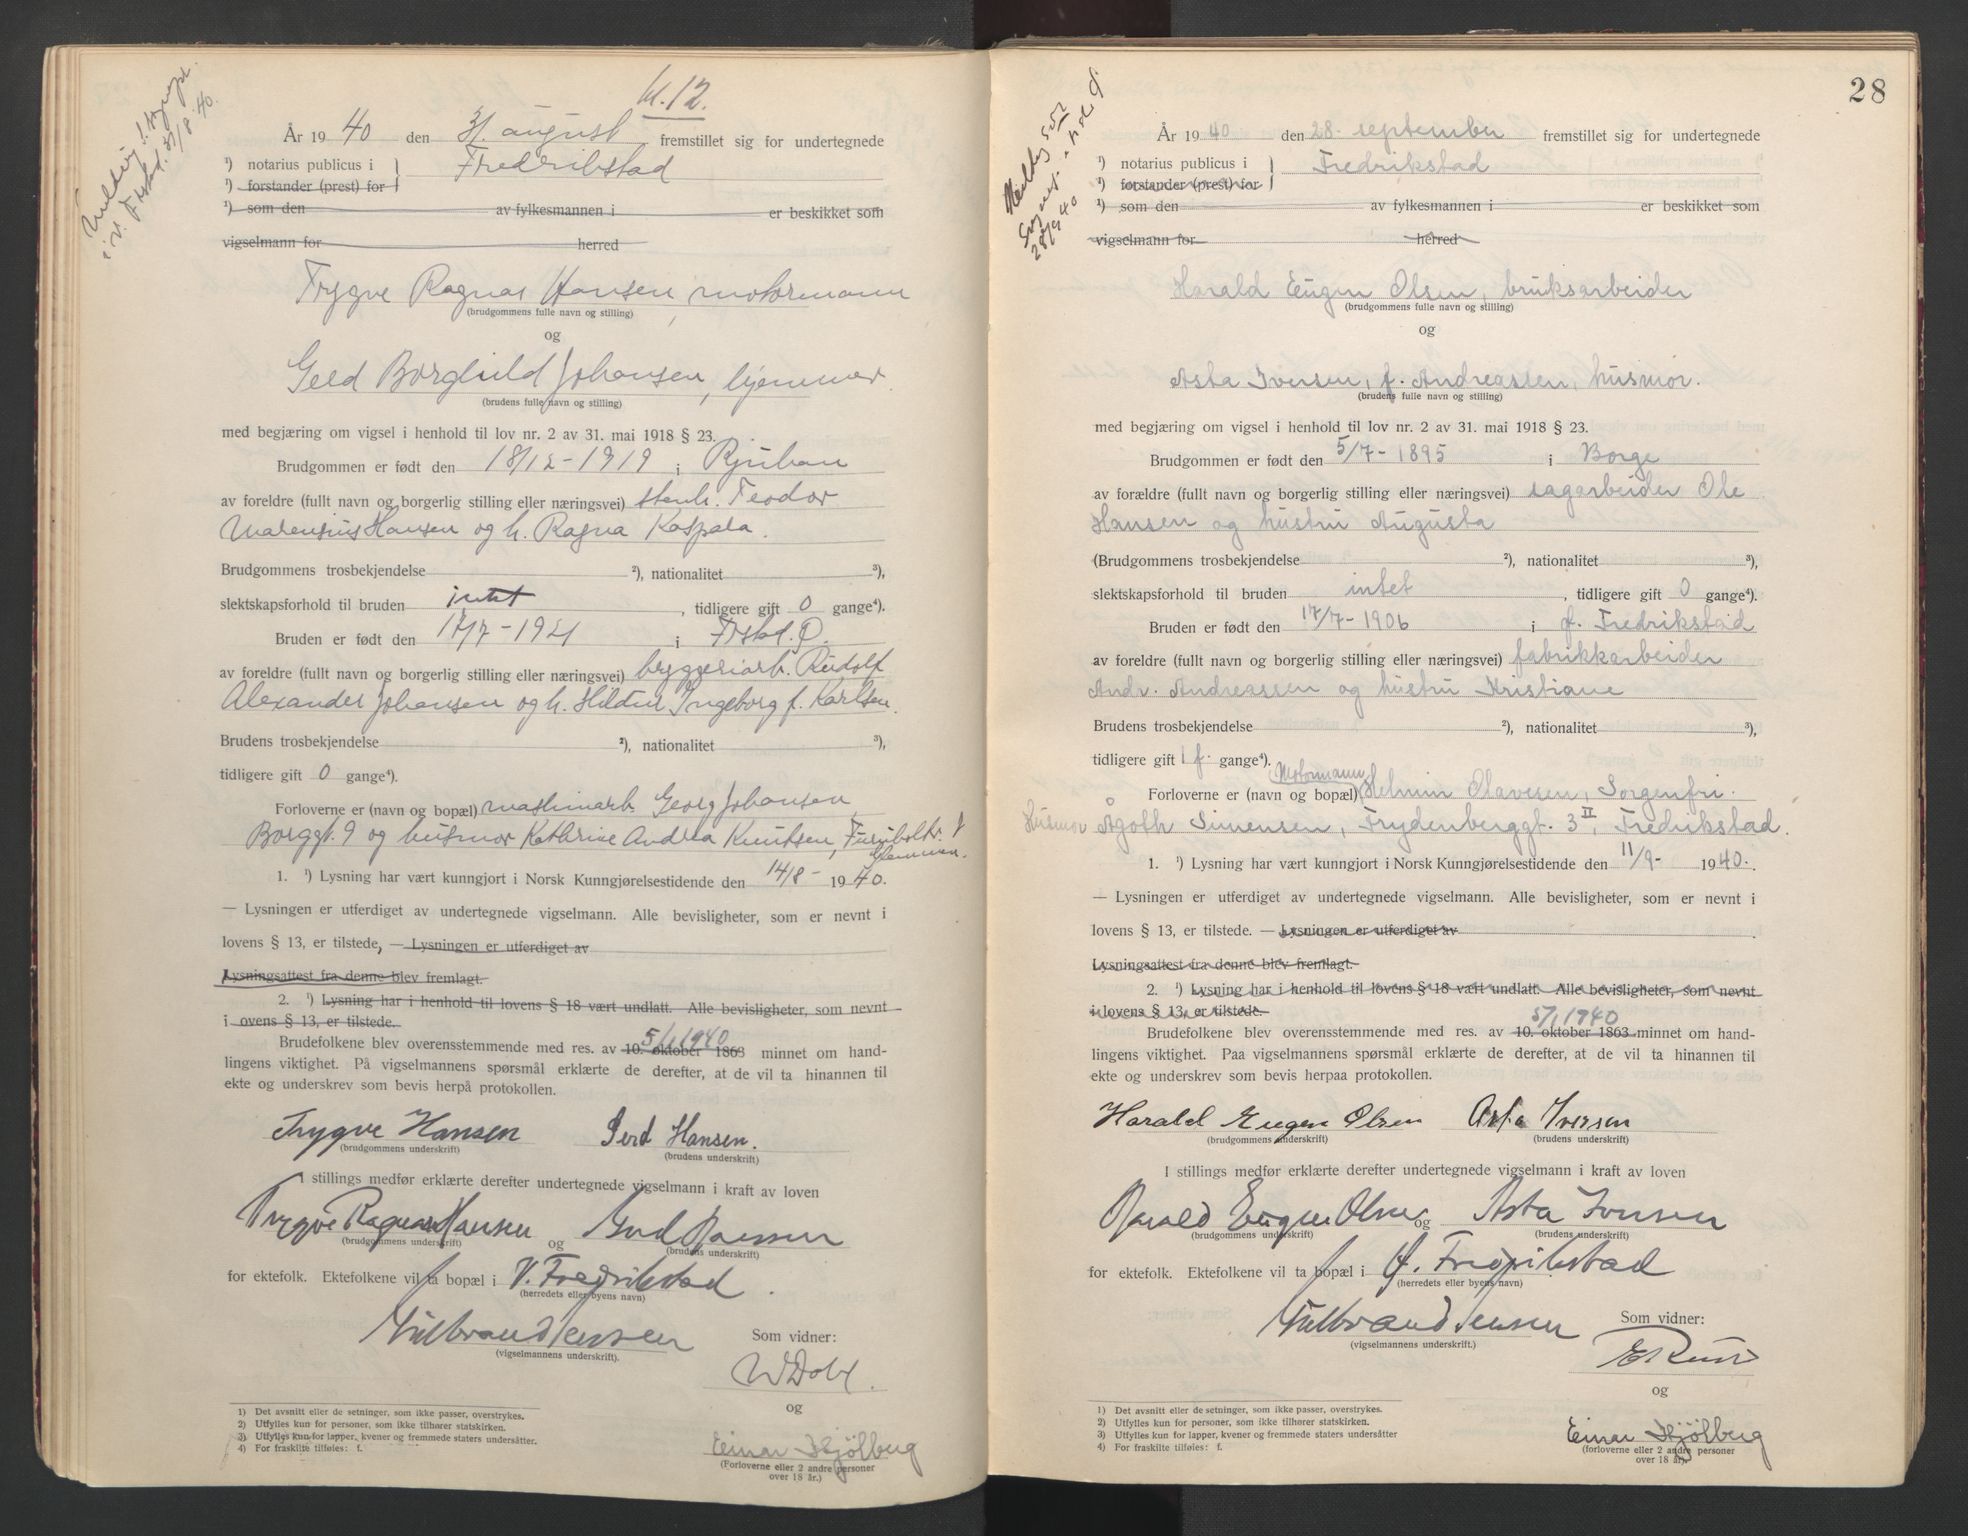 kl. 12.
År 1940 den 31. august fremstillet sig for undertegnede
¹) notarius publicus i Fredrikstad
¹) forstander (prest) for
¹) som den av fylkesmannen i er beskikket som
vigselmann for herred
Trygve Ragnar Hansen, motormann
(brudgommens fulle navn og stilling)
og
Gerd Borghild Johansen, hjemmev.
(brudens fulle navn og stilling)
med begjæring om vigsel i henhold til lov nr. 2 av 31. mai 1918 § 23.
Brudgommen er født den 18/12-1919 i Rjukan
av foreldre (fullt navn og borgerlig stilling eller næringsvei) stenh. Teodor
Marensius Hansen og h. Ragna Kaspala.
Brudgommens trosbekjendelse ²), nationalitet ³),
slektskapsforhold til bruden intet, tidligere gift 0 gange⁴).
Bruden er født den 17/7-1921 i Frstad. Ø.
av foreldre (fullt navn og borgerlig stilling eller næringsvei) bryggeriarb. Rudolf
Alexander Johansen og h. Hildur Ingeborg f. Karlsen.
Brudens trosbekjendelse ²), nationalitet ³),
tidligere gift 0 gange⁴).
Forloverne er (navn og bopæl) maskinarb. Georg Johansen
Borggt. 9 og husmor Kathrine Andrea Knutsen,
Glemmen.
1. ¹) Lysning har vært kunngjort i Norsk Kunngjørelsestidende den 14/8- 1940.
— Lysningen er utferdiget av undertegnede vigselmann. Alle bevisligheter, som er nevnt i
lovens § 13, er tilstede, — Lysningen er utferdiget av
Lysningsattest fra denne blev fremlagt.
2. ¹) Lysning har i henhold til lovens § 18 vært undlatt. Alle bevisligheter, som nevnt
i ovens § 13, er tilstede.
5/1 1940
Brudefolkene blev overensstemmende med res. av 10. oktober 1863 minnet om hand-
lingens viktighet. På vigselmannens spørsmål erklærte de derefter, at de vil ta hinannen til
ekte og underskrev som bevis herpå protokollen.
Trygve Hansen Gerd Hansen.
(brudgommens underskrift) (brudens underskrift)
I stillings medfør erklærte derefter undertegnede vigselmann i kraft av loven
Trygve Ragnar Hansen og Gerd Hansen
(brudgommens underskrift) (brudens underskrift)
for ektefolk. Ektefolkene vil ta bopæl i V. Fredrikstad.
(herredets eller byens navn)
Gulbrand Jensen Som vidner:
(vigselmannens underskrift).
W Dahl.
og
Einar Hjölberg
(Forloverne eller 2 andre personer
over 18 år.)
1) Det avsnitt eller de setninger, som ikke passer, overstrykes.
2) Utfylles kun for personer, som ikke tilhører statskirken.
3) Utfylles kun for lapper, kvener og fremmede staters undersåtter.
4) For fraskilte tilføies: f.
28
28/9 40
År 1940 den 28. september fremstillet sig for undertegnede
¹) notarius publicus i Fredrikstad
¹) forstander (prest) for
¹) som den av fylkesmannen i er beskikket som
vigselmann for herred
Harald Eugen Olsen, bruksarbeider
(brudgommens fulle navn og stilling)
og
Asta Iversen, f. Andreassen, husmor.
(brudens fulle navn og stilling)
med begjæring om vigsel i henhold til lov nr. 2 av 31. mai 1918 § 23.
Brudgommen er født den 5/7-1895 i Borge
av forældre (fullt navn og borgerlig stilling eller næringsvei) sagarbeider Ole
Hansen og hustru Augusta
(Brudgommens trosbekjendelse ²), nationalitet ³),
slektskapsforhold til bruden intet, tidligere gift 0 gange⁴).
Bruden er født den 17/7-1906 i Ø. Fredrikstad
av foreldre (fullt navn og borgerlig stilling eller næringsvei) fabrikkarbeider
Andr. Andreassen og hustru Kristiane
Brudens trosbekjendelse ²), nationalitet ³),
tidligere gift 1 f. gange⁴).
Forloverne er (navn og bopæl) Motormann Helmin Olavesen, Sorgenfri.
Husmor Ågoth Simensen, Frydenberggt. 3 II, Fredrikstad.
1. ¹) Lysning har vært kunngjort i Norsk Kunngjørelsestidende den 11/9- 1940.
— Lysningen er utferdiget av undertegnede vigselmann. Alle bevisligheter, som er nevnt i
lovens § 13, er tilstede. — Lysningen er utferdiget av
Lysningsattest fra denne blev fremlagt.
2. ¹) Lysning har i henhold til lovens § 18 vært undlatt. Alle bevisligheter, som nevnt
i lovens § 13, er tilstede.
5/1 1940
Brudefolkene blev overensstemmende med res. av 10. oktober 1863 minnet om hand-
lingens viktighet. Paa vigselmannens spørsmål erklærte de derefter, at de vil ta hinannen til
ekte og underskrev som bevis herpaa protokollen.
Harald Eugen Olsen Asta Iversen
(brudgommens underskrift) (brudens underskrift)
I stillings medfør erklærte derefter undertegnede vigselmann i kraft av loven
Harald Eugen Olsen og Asta Iversen
(brudgommens underskrift) (brudens underskrift)
for ektefolk. Ektefolkene vil ta bopæl i Ø. Fredrikstad
(herredets eller byens navn)
Gulbrand Jensen Som vidner:
(vigselmannens underskrift.)
og
Einar Hjölberg
(forloverne eller 2 andre personer
over 18 år).
1) Det avsnitt eller de setninger, som ikke passer, overstrykes.
2) Utfylles kun for personer, som ikke tilhører statskirken.
3) Utfylles kun for lapper, kvener og fremmede staters undersåtter
4) For fraskilte tilføies: f.